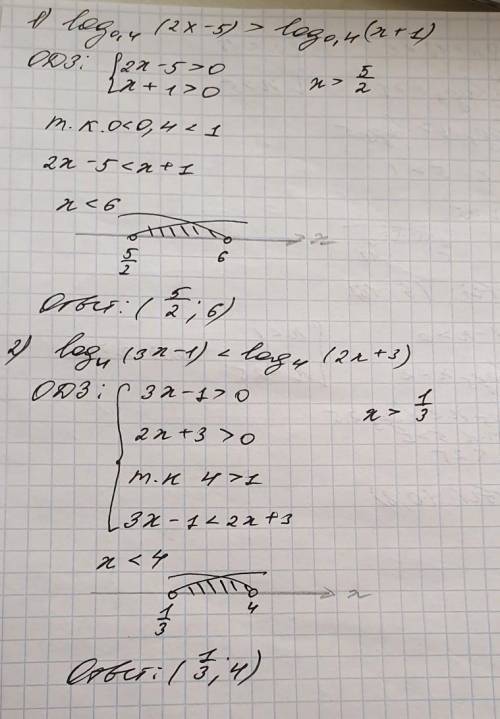 1) log₀,₄ (2x-5) > log₀,₄ (x+1)
ОДЗ: { 2x-5>0 x > 5/2
x+1>0
т.к. 0<0,4<1
2x-5<x+1
x<6
x
5/2 6
Ответ: (5/2; 6)
2) log₄ (3x-1) < log₄ (2x+3)
ОДЗ: { 3x-1>0 x > 1/3
2x+3>0
т.к 4>1
3x-1<2x+3
x<4
x
1/3 4
Ответ: (1/3; 4)